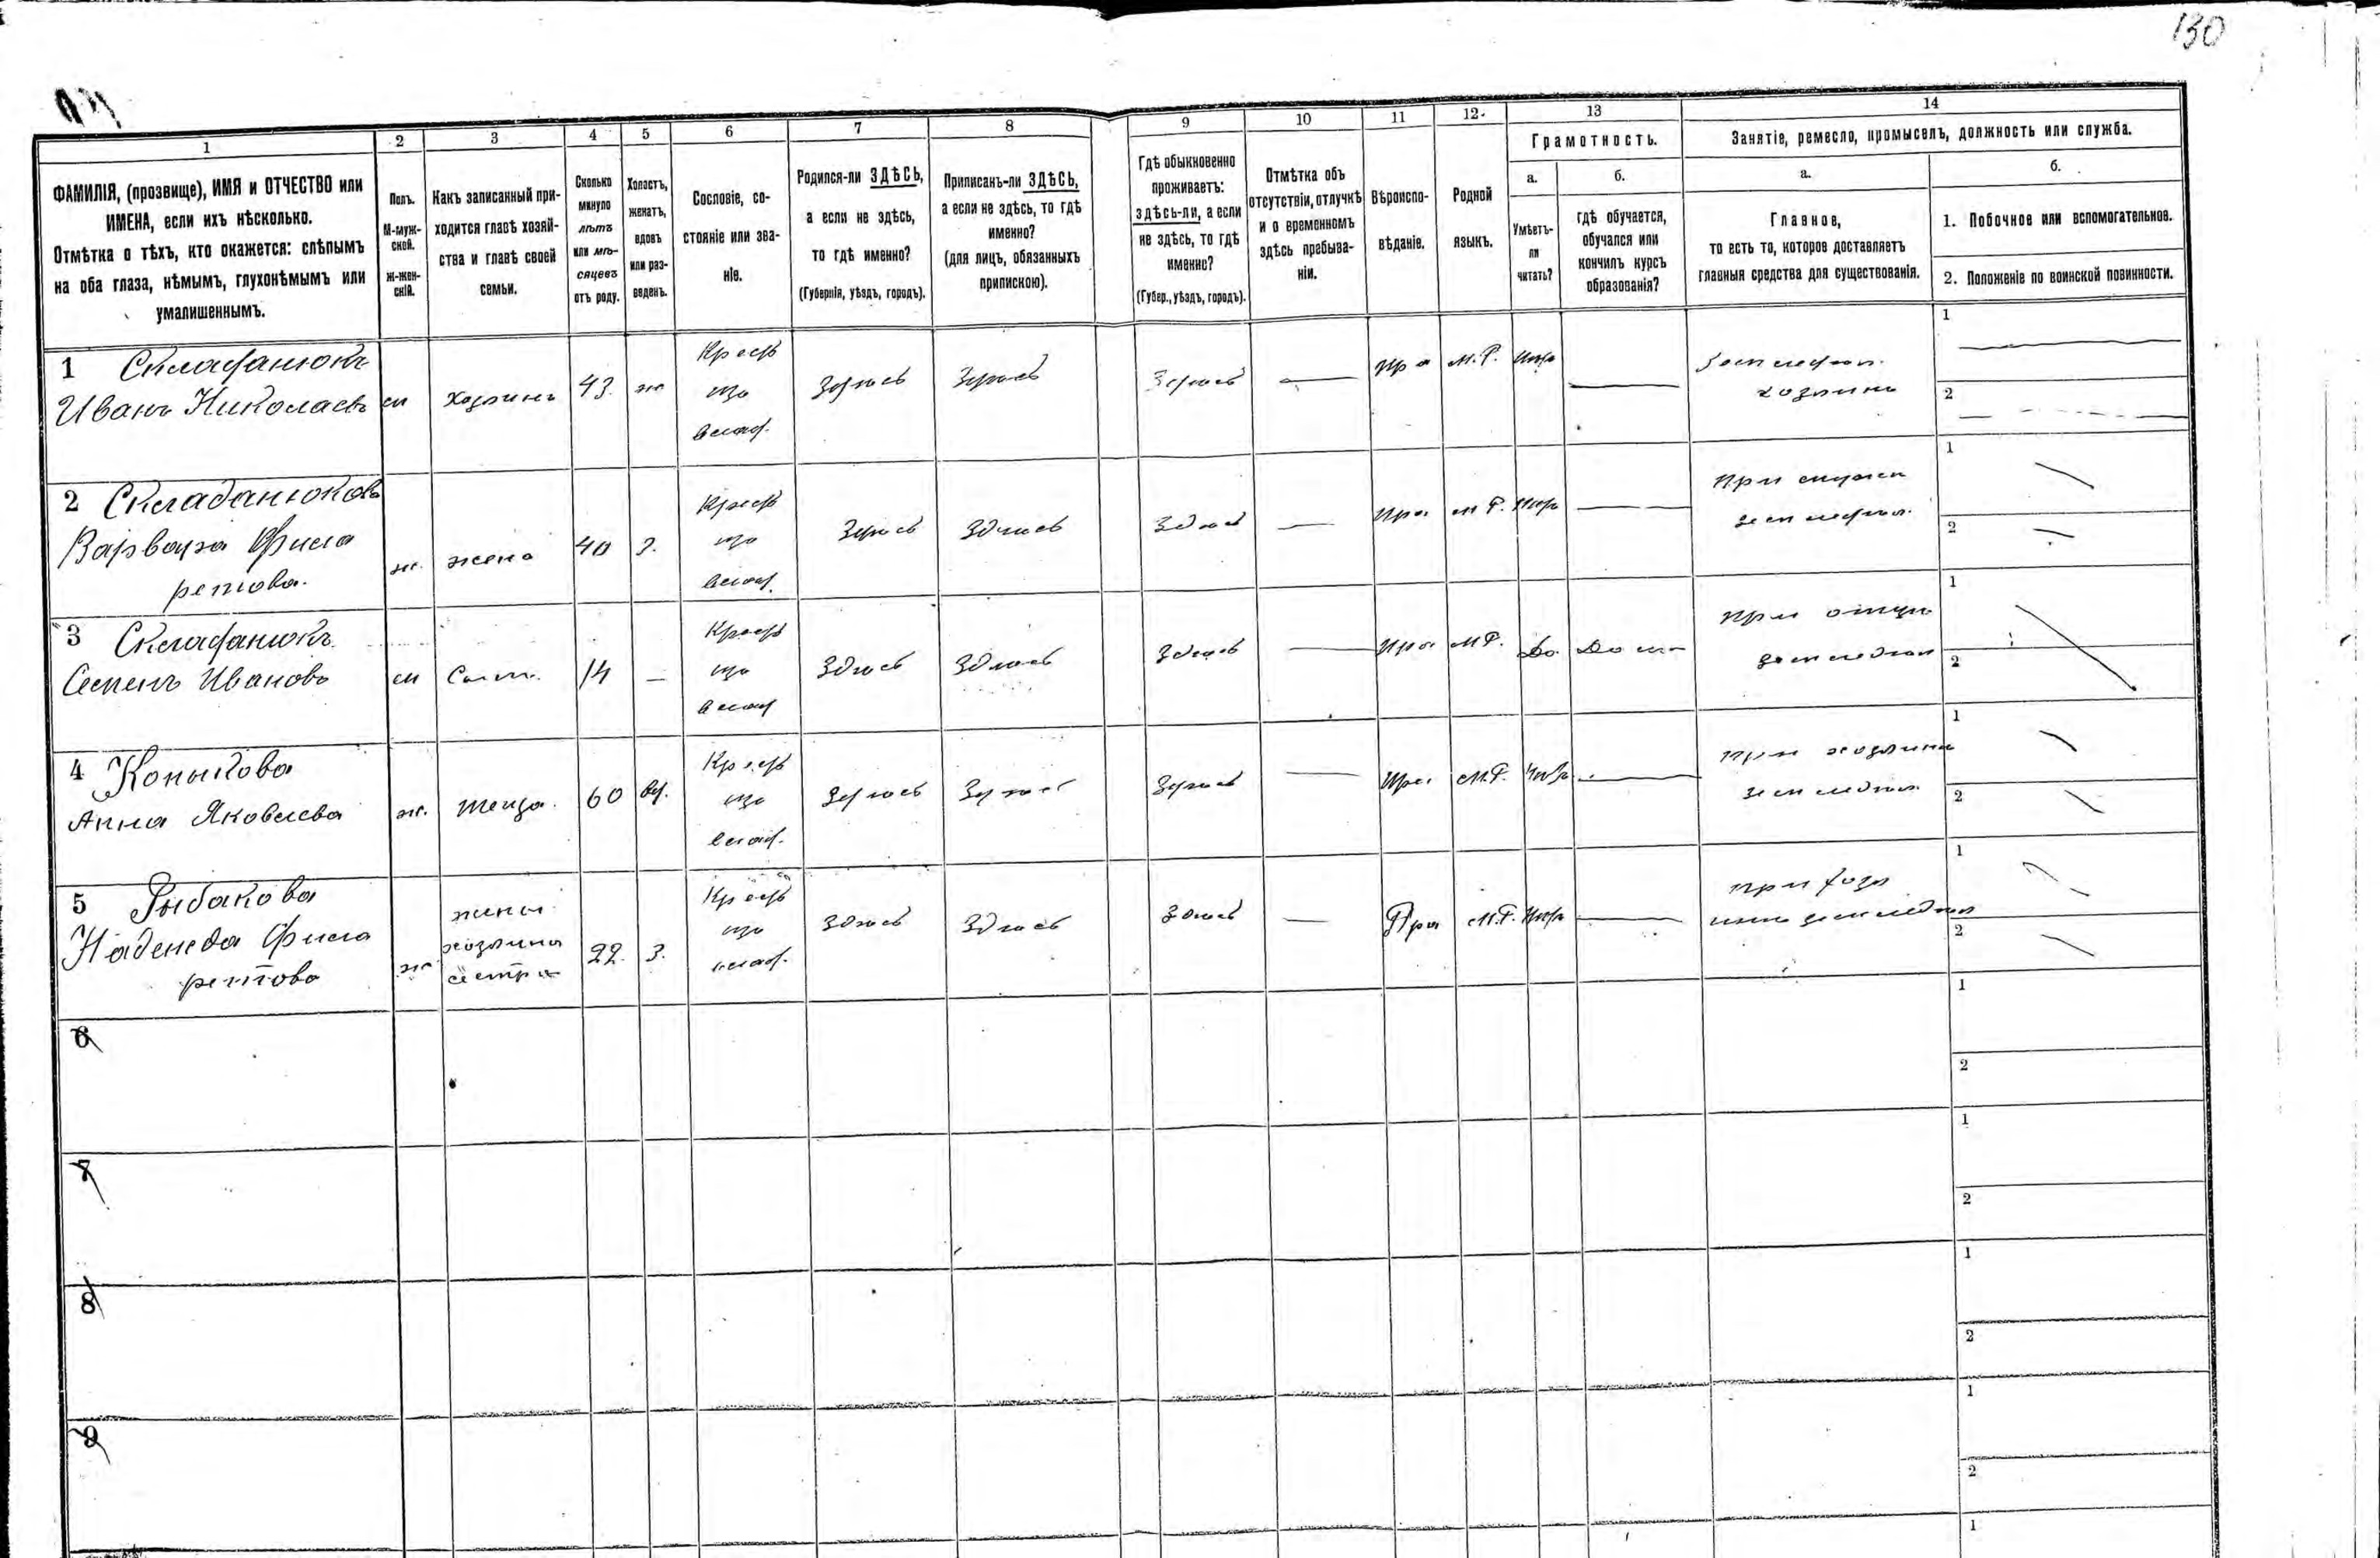 130
1
2
3
4
5
6
7
8
9
10
11
12.
13
14
ФАМИЛІЯ, (прозвище), ИМЯ и ОТЧЕСТВО или
ИМЕНА, если ихъ нѣсколько.
Отмѣтка о тѣхъ, кто окажется: слѣпымъ
на оба глаза, нѣмымъ, глухонѣмымъ или
умалишеннымъ.
Полъ.
М-муж-
ской.
Ж-жен-
скій.
Какъ записанный при-
ходится главѣ хозяй-
ства и главѣ своей
семьи.
Сколько
минуло
лѣтъ
или мѣ-
сяцевъ
отъ роду.
Холостъ,
женатъ,
вдовъ
или раз-
веденъ.
Сословіе, со-
стояніе или зва-
ніе.
Родился-ли ЗДѢСЬ,
а если не здѣсь,
то гдѣ именно?
(Губернія, уѣздъ, городъ).
Приписанъ-ли ЗДѢСЬ,
а если не здѣсь, то гдѣ
именно?
(для лицъ, обязанныхъ
припискою).
Гдѣ обыкновенно
проживаетъ:
здѣсь-ли, а если
не здѣсь, то гдѣ
именно?
(Губер., уѣздъ, городъ).
Отмѣтка объ
отсутствіи, отлучкѣ
и о временномъ
здѣсь пребыва-
ніи.
Вѣроиспо-
вѣданіе.
Родной
языкъ.
Грамотность.
а.
Умѣетъ-
ли
читать?
б.
гдѣ обучается,
обучался или
кончилъ курсъ
образованія?
Занятіе, ремесло, промыселъ, должность или служба.
а.
Главное,
то есть то, которое доставляетъ
главныя средства для существованія.
б.
1. Побочное или вспомогательное.
2. Положеніе по воинской повинности.
1 Складанюкъ
Иванъ Николаевъ
м Хозяинъ 43. ж
Крест
влад.
Здѣсь Здѣсь Здѣсь — Пра М.Р.
Земледѣл.
хозяинъ
1
2
2 Складанюкова
Варвара Фила
ретова.
ж. жена 40 З.
Крест
влад.
Здѣсь Здѣсь Здѣсь — Пра М.Р. —
При мужѣ
земледѣл.
1
2
3 Складанюкъ
Семенъ Ивановъ
м Сынъ. 14 —
Крест
влад
Здѣсь Здѣсь Здѣсь — Пра М.Р. До
При отцѣ
земледѣл
1
2
4 Копылова
Анна Яковлева
ж. теща. 60 вд.
Крест
влад.
Здѣсь Здѣсь Здѣсь — Пра М.Р. —
при хозяинѣ
земледѣл.
1
2
5 Рыбакова
Надежда Фила
ретова
ж
жены
хозяина
сестра
22. З.
Крест
влад.
Здѣсь Здѣсь Здѣсь — Пра М.Р. —
при хозя
инѣ земледѣл
1
2
6
1
2
7
1
2
8
1
2
9
1
2
1